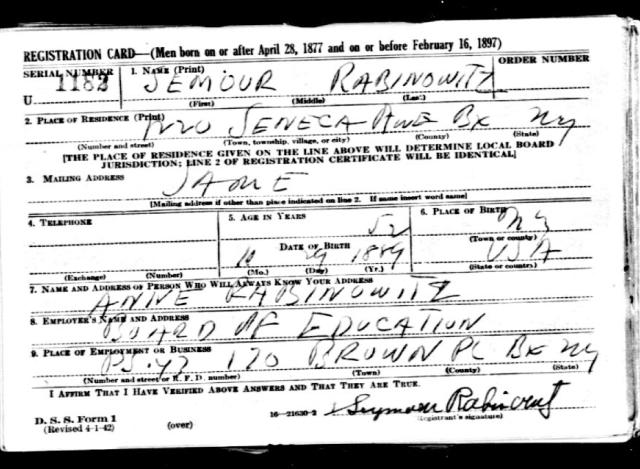 REGISTRATION CARD—(Men born on or after April 28, 1877 and on or before February 16, 1897)
SERIAL NUMBER 1. NAME (Print) ORDER NUMBER
U 1182 SEMOUR RABINOWITZ
(First) (Middle) (Last)
2. PLACE OF RESIDENCE (Print)
SENECA AVE BX NY
(Number and street) (Town, township, village, or city) (County) (State)
[THE PLACE OF RESIDENCE GIVEN ON THE LINE ABOVE WILL DETERMINE LOCAL BOARD
JURISDICTION; LINE 2 OF REGISTRATION CERTIFICATE WILL BE IDENTICAL]
3. MAILING ADDRESS
SAME
[Mailing address if other than place indicated on line 2. If same insert word same]
4. TELEPHONE 5. AGE IN YEARS 6. PLACE OF BIRTH
52 NY
DATE OF BIRTH (Town or county)
10 29 1889 USA
(Exchange) (Number) (Mo.) (Day) (Yr.) (State or country)
7. NAME AND ADDRESS OF PERSON WHO WILL ALWAYS KNOW YOUR ADDRESS
ANNE RABINOWITZ
8. EMPLOYER'S NAME AND ADDRESS
BOARD OF EDUCATION
9. PLACE OF EMPLOYMENT OR BUSINESS
PS. 43 170 BROWN PL BX NY
(Number and street or R. F. D. number) (Town) (County) (State)
I AFFIRM THAT I HAVE VERIFIED ABOVE ANSWERS AND THAT THEY ARE TRUE.
D. S. S. Form 1 16—21630-2 Seymour Rabinowitz
(Revised 4-1-42) (over) (Registrant's signature)